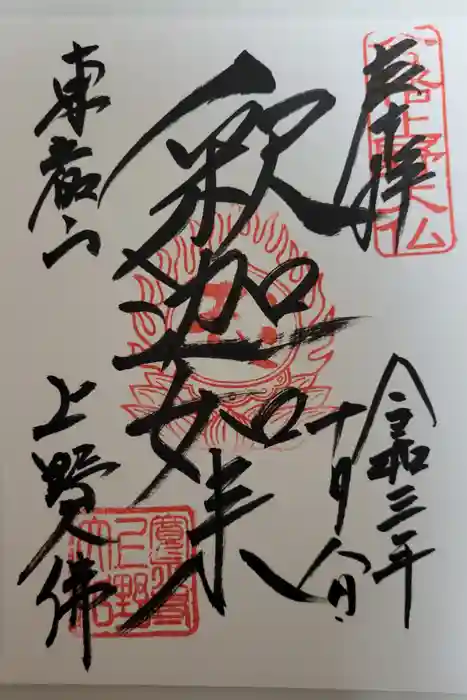 奉拝
令和三年
十月八日
釈迦如来
東叡山
上野大佛
上野大仏